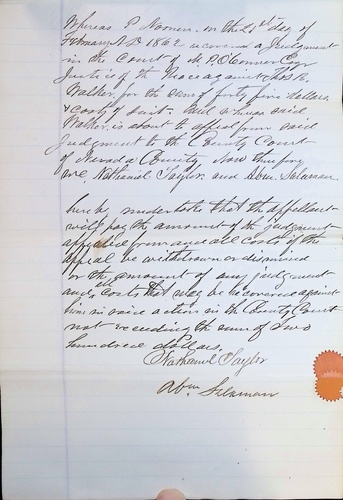 Whereas P. Noonen on the 21st day of
February A.D 1862 recovered a Judgment
in the Court of M. P. O'Connor Esqr
Justice of the Peace against Thos R.
Walker, for the sum of forty five dollars
& costs of suit. And whereas said
Walker is about to appeal from said
Judgment to the County Court
of Nevada County, Now therefore
we Nathaniel Taylor and Abm. Salaman
hereby undertake that the appellant
will pay the amount of the judgment
appealed from and all costs if the
appeal be withdrawn or dismissed
or the amount of any judgment
and costs that may be recovered against
him in said action in the County Court
not exceeding the sum of two
hundred dollars.
Nathaniel Taylor
Abm Salaman